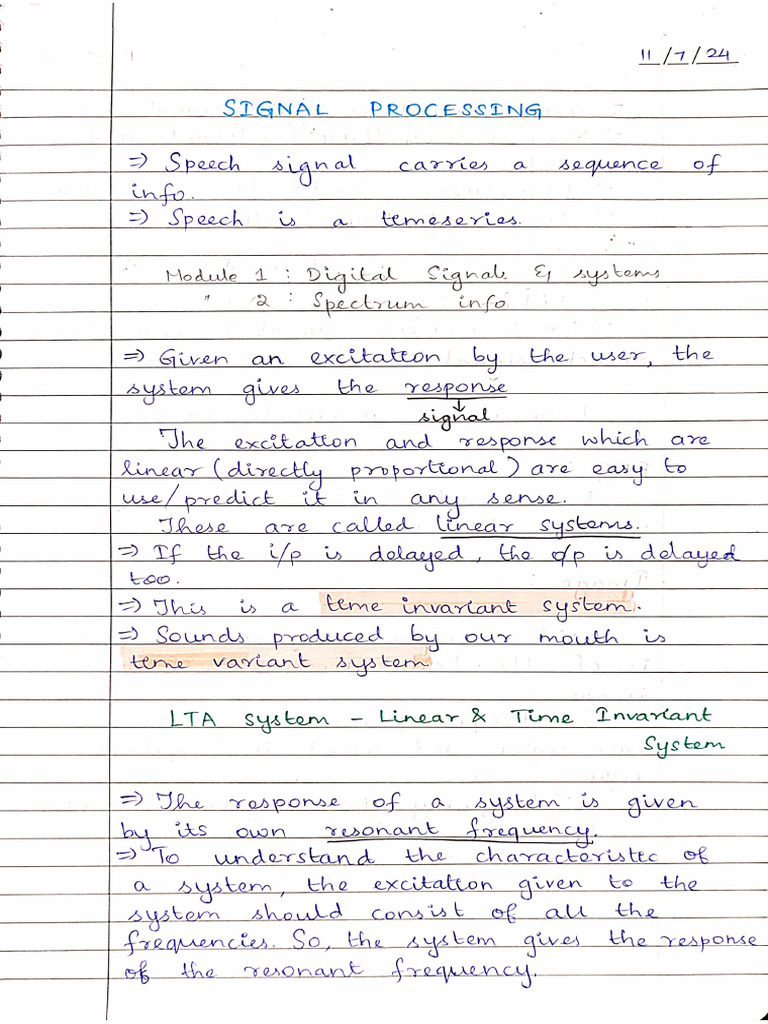 11/7/24
SIGNAL PROCESSING
⇒ Speech signal carries a sequence of
info.
⇒ Speech is a timeseries.
Module 1 : Digital Signals & systems
" 2 : Spectrum info
⇒ Given an excitation by the user, the
system gives the response
↓
signal
The excitation and response which are
linear (directly proportional) are easy to
use/predict it in any sense.
These are called linear systems.
⇒ If the i/p is delayed, the o/p is delayed
too.
⇒ This is a time invariant system.
⇒ Sounds produced by our mouth is
time variant system
LTA system - Linear & Time Invariant
System
⇒ The response of a system is given
by its own resonant frequency.
⇒ To understand the characteristic of
a system, the excitation given to the
system should consist of all the
frequencies. So, the system gives the response
of the resonant frequency.